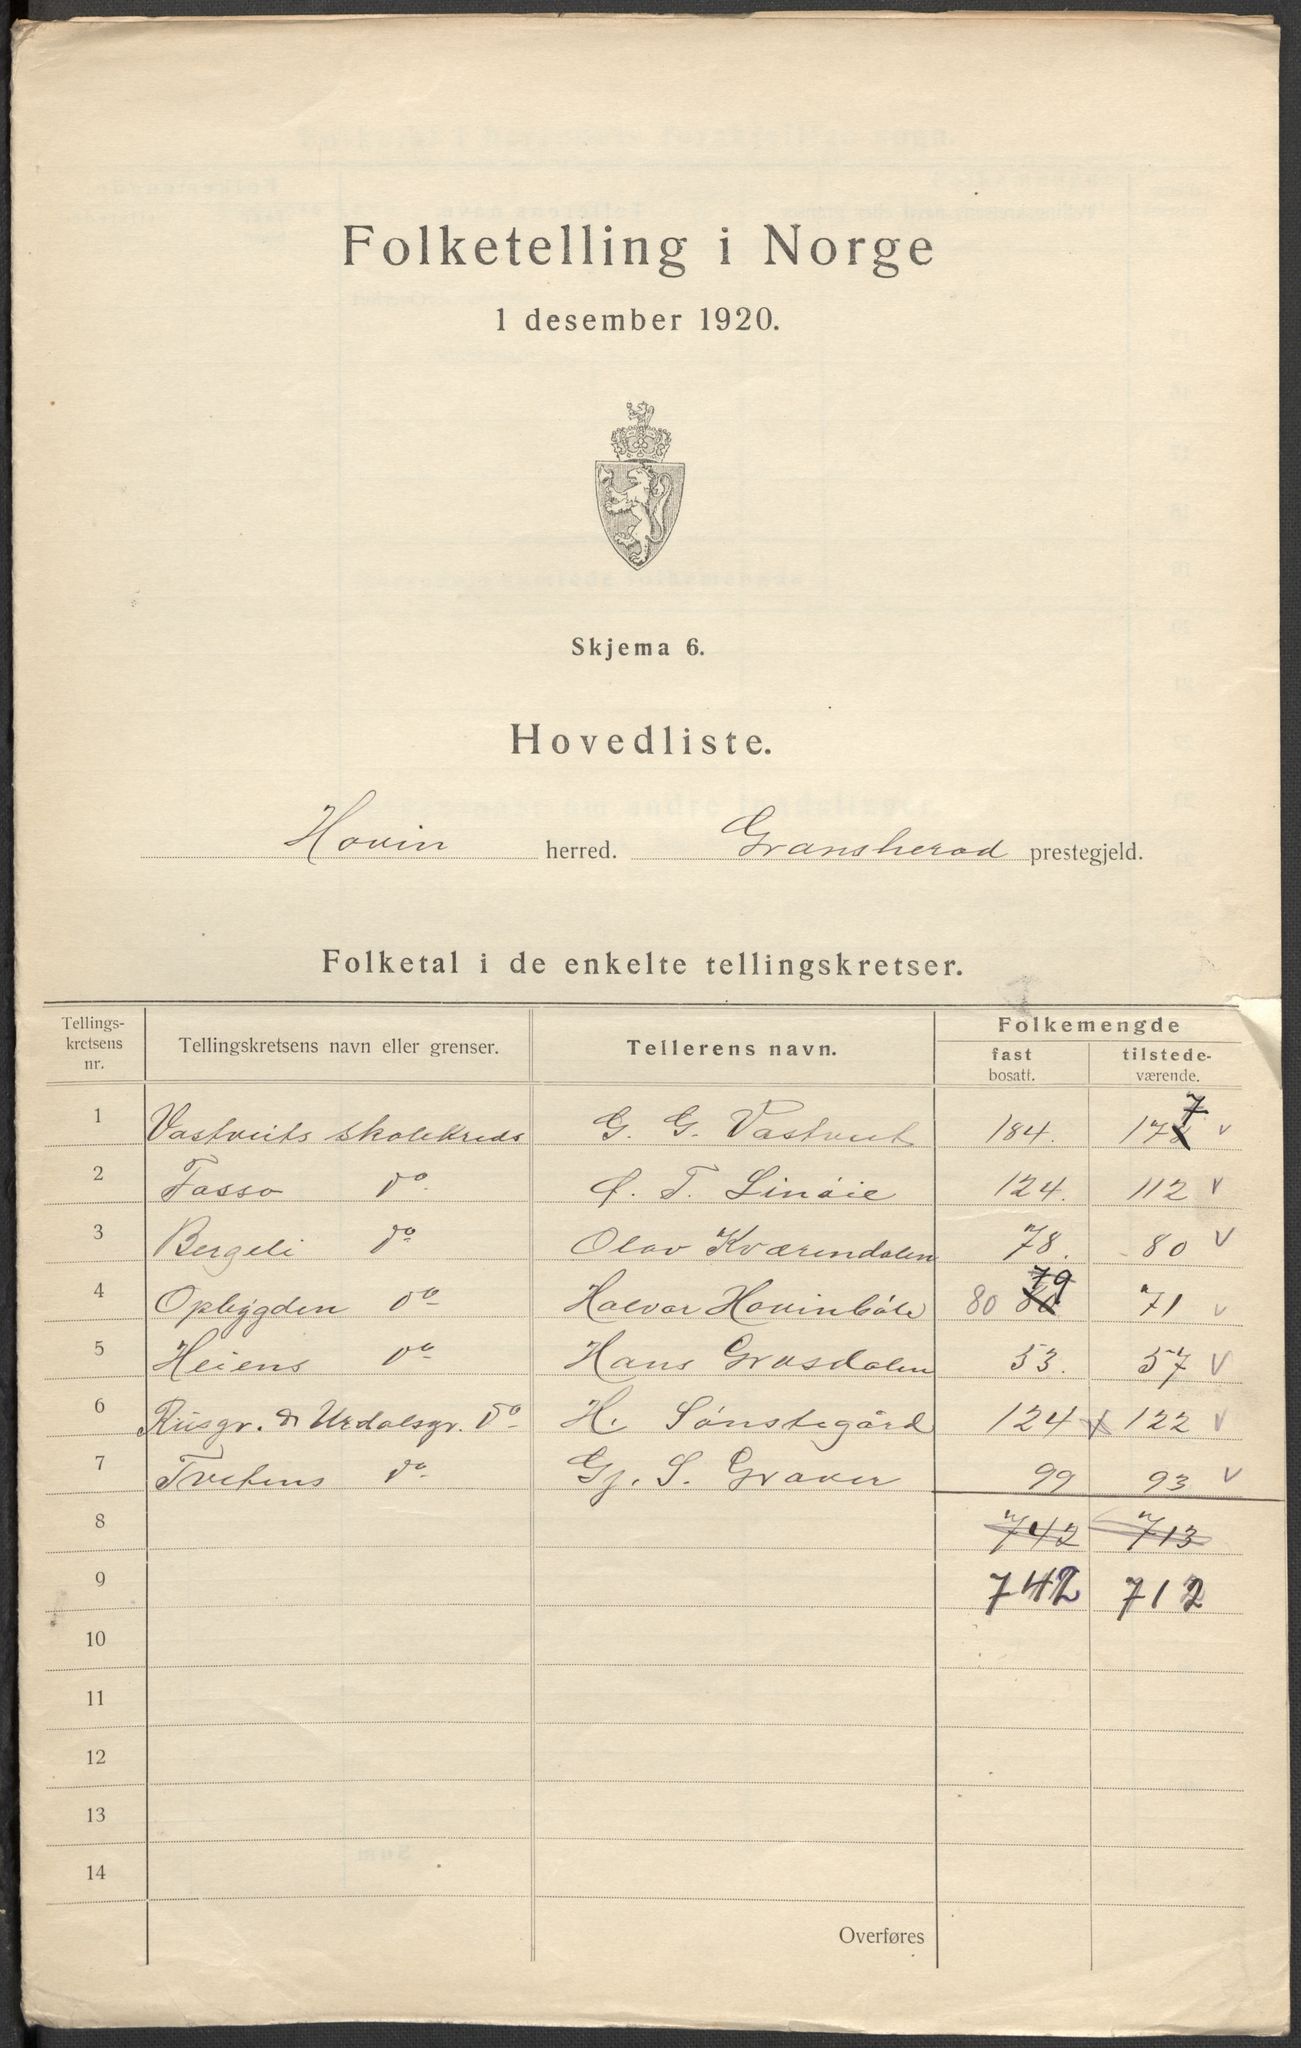 Folketelling i Norge
1 desember 1920.
Skjema 6.
Hovedliste.
Hovin herred. Gransherad prestegjeld.
Folketal i de enkelte tellingskretser.
Tellings-kretsens nr. Tellingskretsens navn eller grenser. Tellerens navn. Folkemengde
fast bosatt. tilstede-værende.
1 Vastveits skolekreds G. G. Vastveit 184. 177 v
2 Fosso do T. Linöie 124. 112 v
3 Bergeli do Olav Kværndalen 78. 80 v
4 Opbygden do Halvor Hovinbøle 80 80 79 71 v
5 Heiens do Hans Grasdalen 53. 57 v
6 Riisgr. & Urdalsgr. do H. Sønstegård 124 v 122 v
7 Tvetens do Gj. S. Graver 99 93 v
8 742 713
9 742 712
10
11
12
13
14
Overføres